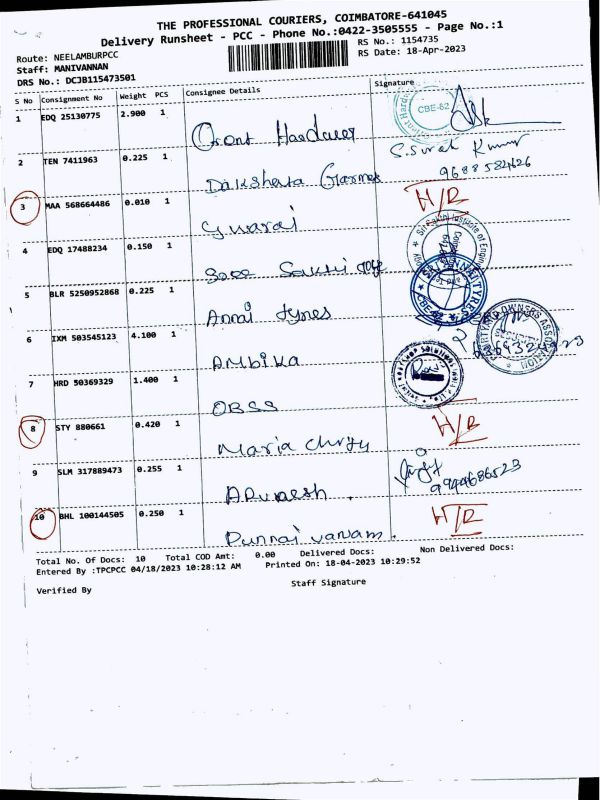 THE PROFESSIONAL COURIERS, COIMBATORE-641045
Delivery Runsheet - PCC - Phone No.:0422-3505555 - Page No.:1
Route: NEELAMBURPCC
RS No.: 1154735
Staff: MANIVANNAN
RS Date: 18-Apr-2023
DRS No.: DCJB115473501
S No Consignment No Weight PCS Consignee Details Signature
1 EDQ 25130775 2.900 1
CBE-62
2 TEN 7411963 0.225 1
S. Suresh Kumar
9688584626
3 MAA 568664486 0.010 1 H/R
4 EDQ 17488234 0.150 1
5 BLR 5250952868 0.225 1 Annai tyres
6 IXM 503545123 4.100 1 Ambika
7 HRD 50369329 1.400 1 OBSS
8 STY 880661 0.420 1 H/R
9 SLM 317889473 0.255 1
9944686523
10 BHL 100144505 0.250 1 Punnai vanam. H/R
Total No. Of Docs: 10 Total COD Amt: 0.00 Delivered Docs: Non Delivered Docs:
Entered By :TPCPCC 04/18/2023 10:28:12 AM Printed On: 18-04-2023 10:29:52
Verified By Staff Signature